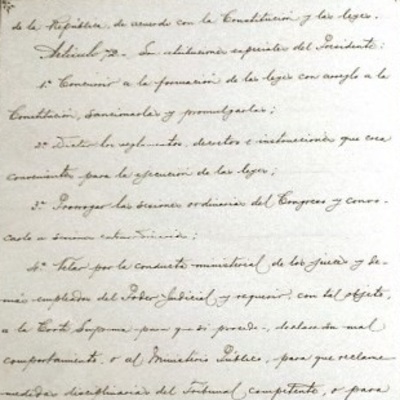 de la República, de acuerdo con la Constitución y las leyes.
Artículo 72.- Son atribuciones especiales del Presidente:
1.° Concurrir a la formación de las leyes con arreglo a la
Constitución, sancionarlas y promulgarlas;
2.° Dictar los reglamentos, decretos e instrucciones que crea
convenientes para la ejecución de las leyes;
3.° Prorrogar las sesiones ordinarias del Congreso y convo-
carlo a sesiones extraordinarias;
4.° Velar por la conducta ministerial de los jueces y de-
más empleados del Poder Judicial y requerir, con tal objeto,
a la Corte Suprema para que si procede, declare su mal
comportamiento, o al Ministerio Público, para que reclame
medidas disciplinarias del Tribunal competente, o para